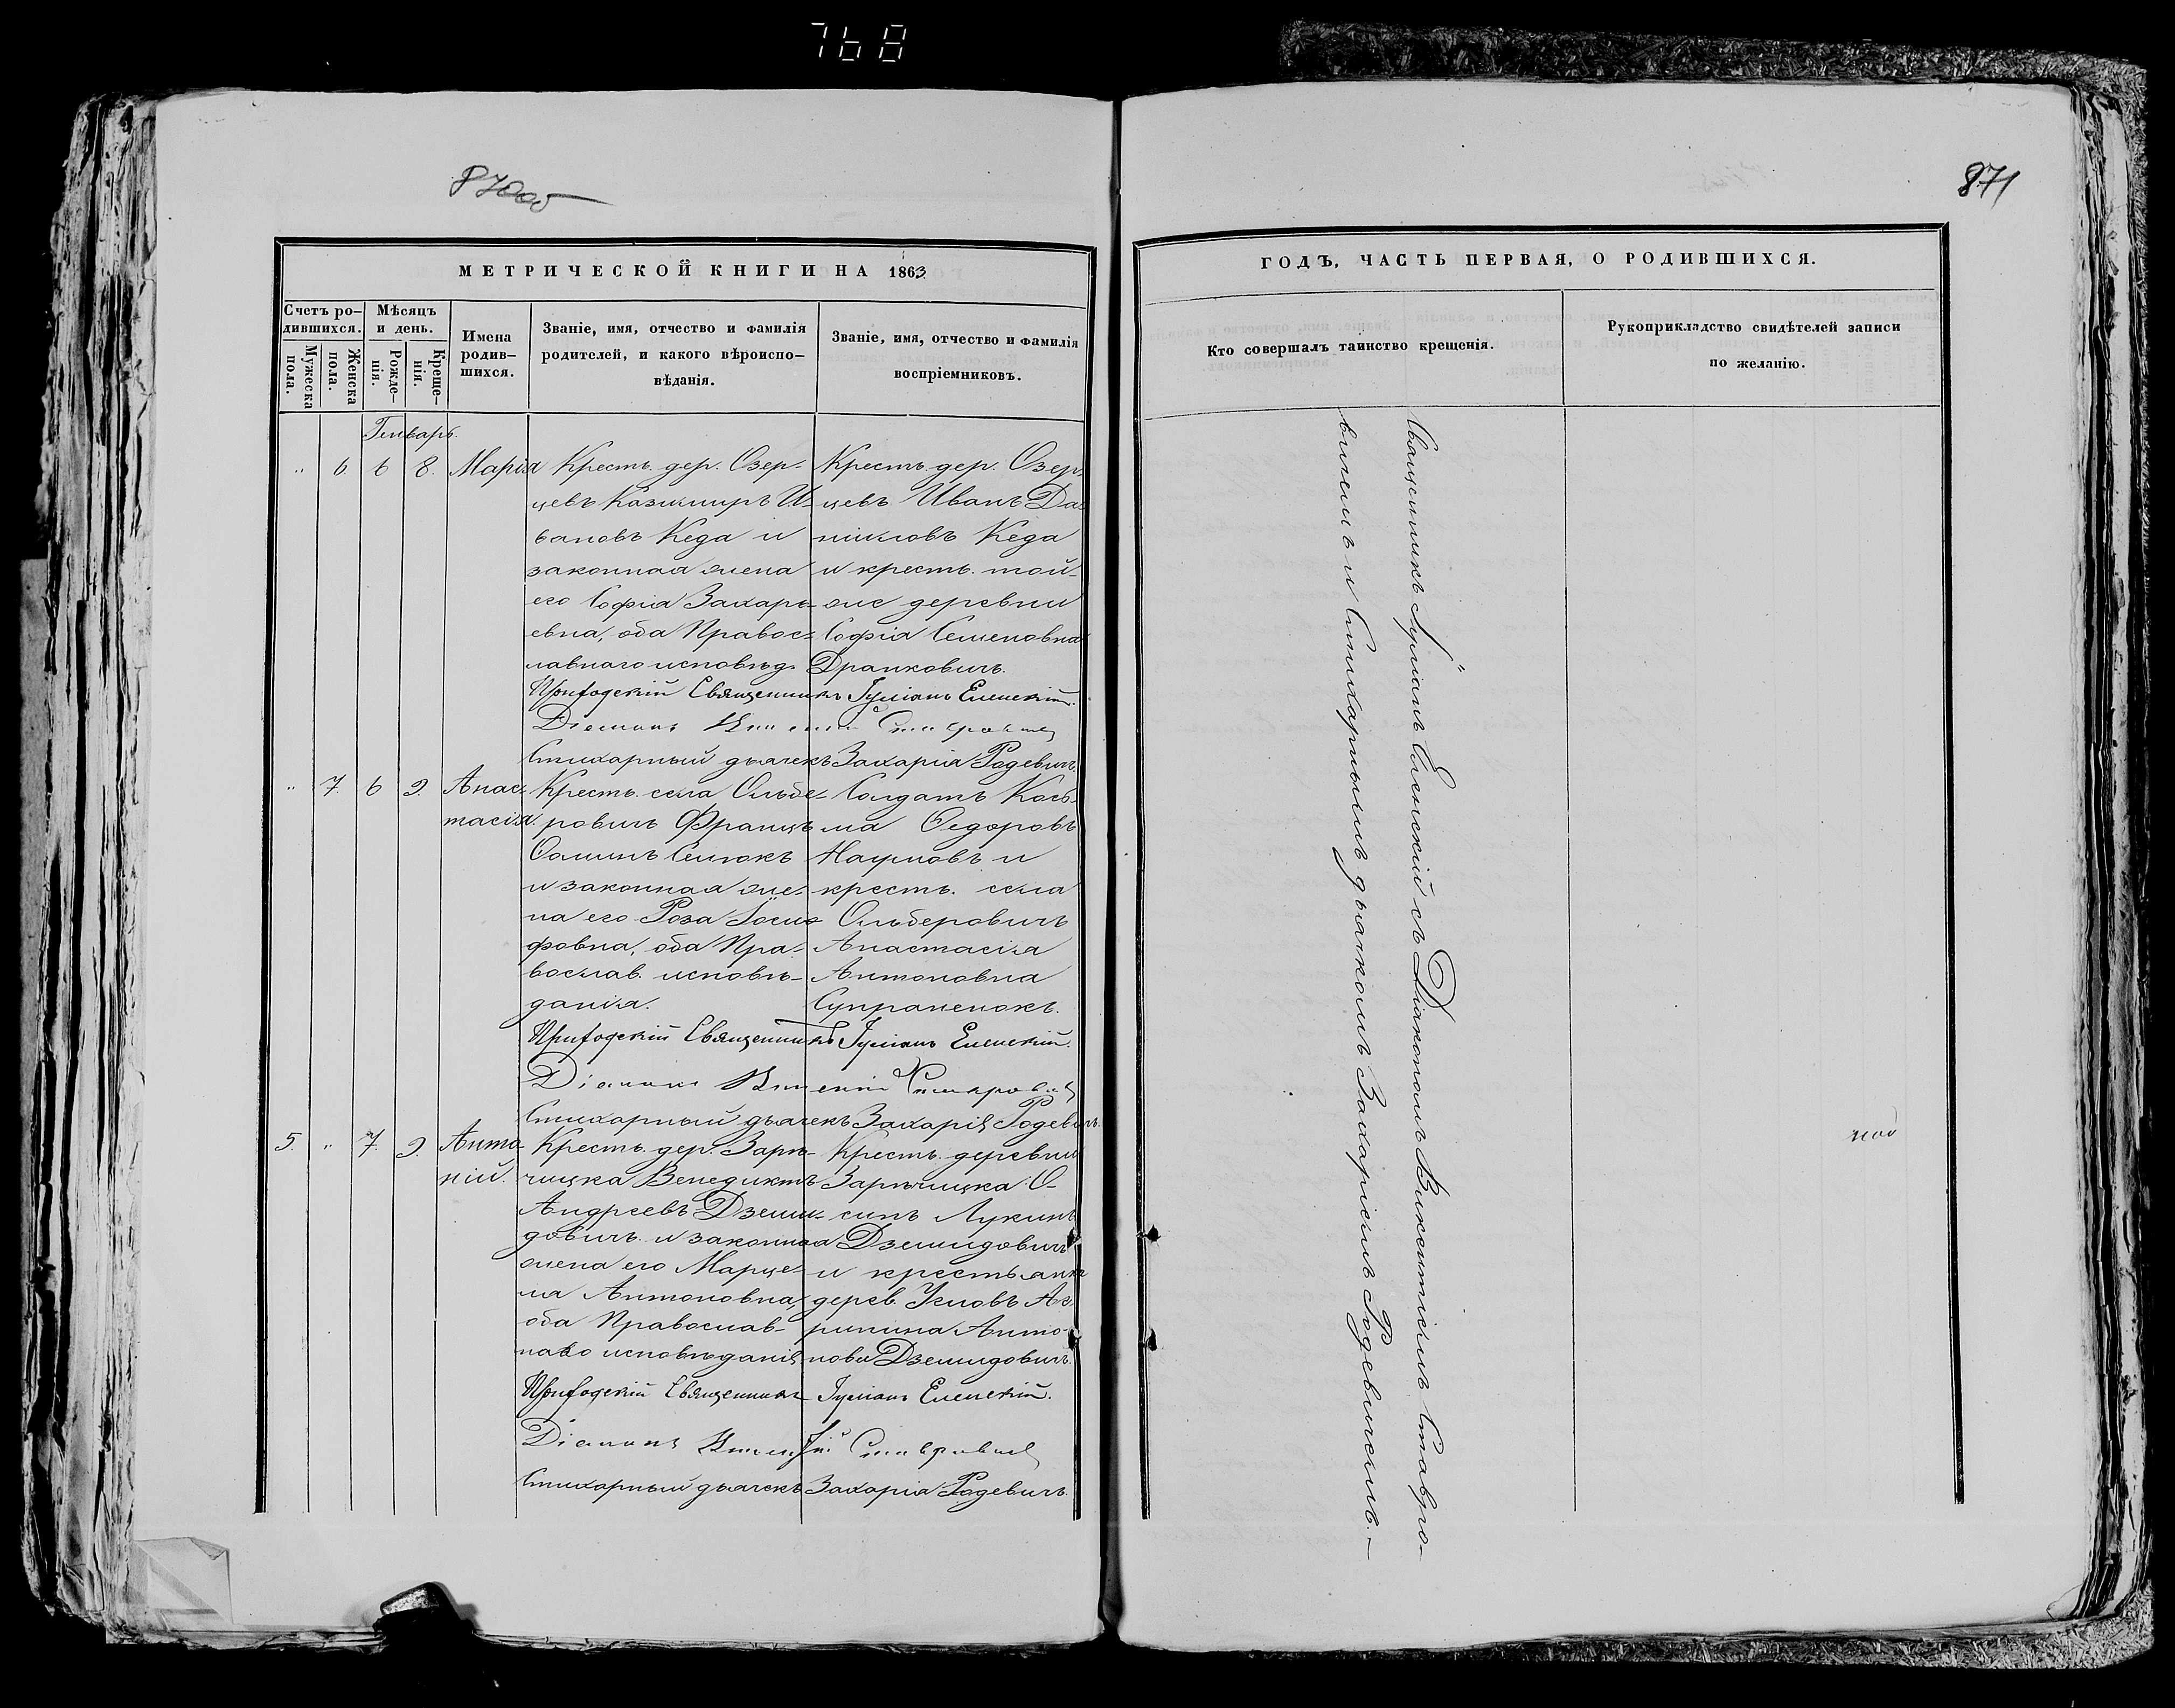 768
870об
871
МЕТРИЧЕСКОЙ КНИГИ НА 1863
Счетъ ро-
дившихся.
Мужеска
пола.
Женска
пола.
Мѣсяцъ
и день.
Рожде-
нія.
Креще-
нія.
Имена
родив-
шихся.
Званіе, имя, отчество и фамилія
родителей, и какого вѣроиспо-
вѣданія.
Званіе, имя, отчество и фамилія
воспріемниковъ.
Генварь.
" 6. 6 8. Марія
Крестъ. дер. Озер-
цевъ Казимиръ И-
вановъ Кеда и
законная жена
его Софія Захарь-
евна, оба Правос-
лавнаго исповѣд.
Крестъ. дер. Озер
цевъ Иванъ Да
ниловъ Кеда
и крестъ. той-
же деревни
Софія Семеновна
Дранковичъ.
Приходскій Священникъ Іуліанъ Еленскій.
Діаконъ
Стихарный дьячекъ Захарія Родевичъ.
" 7. 6 9. Анас-
тасія.
Крестъ. села Ольбе-
ровичъ Францъ
Ѳоминъ Сенюкъ
и законная же-
на его Роза Іоси-
фовна, оба Пра-
вослав. исповѣ-
данія.
Солдатъ Кось-
ма Ѳедоровъ
Наумовъ и
крестъ. села
Ольберовичъ
Анастасія
Антоновна
Супраненокъ.
Приходскій Священникъ Іуліанъ Еленскій.
Діаконъ
Стихарный дьячекъ Захарія Родевичъ.
5. " 7. 9. Анто
ній.
Крестъ. дер. Зарѣ-
чицка Венедиктъ
Андреевъ Дземи-
довичъ и законная
жена его Марце-
ла Антоновна,
оба Православ-
наго исповѣданія
Крестъ. деревни
Зарѣчицка О-
сипъ Лукинъ
Дземидовичъ
и крестьянк
дерев. Угловъ Аг
рипина Анто-
нова Дземидовичъ.
Приходскій Священникъ Іуліанъ Еленскій.
Діаконъ
Стихарный дьячекъ Захарія Родевичъ.
ГОДЪ, ЧАСТЬ ПЕРВАЯ, О РОДИВШИХСЯ.
Кто совершалъ таинство крещенія.
Рукоприкладство свидѣтелей записи
по желанію.
Священникъ Іуліанъ Еленскій съ Діакономъ Викентіемъ Ставро-
вичемъ и Стихарнымъ дьячкомъ Захаріемъ Родевичемъ.—